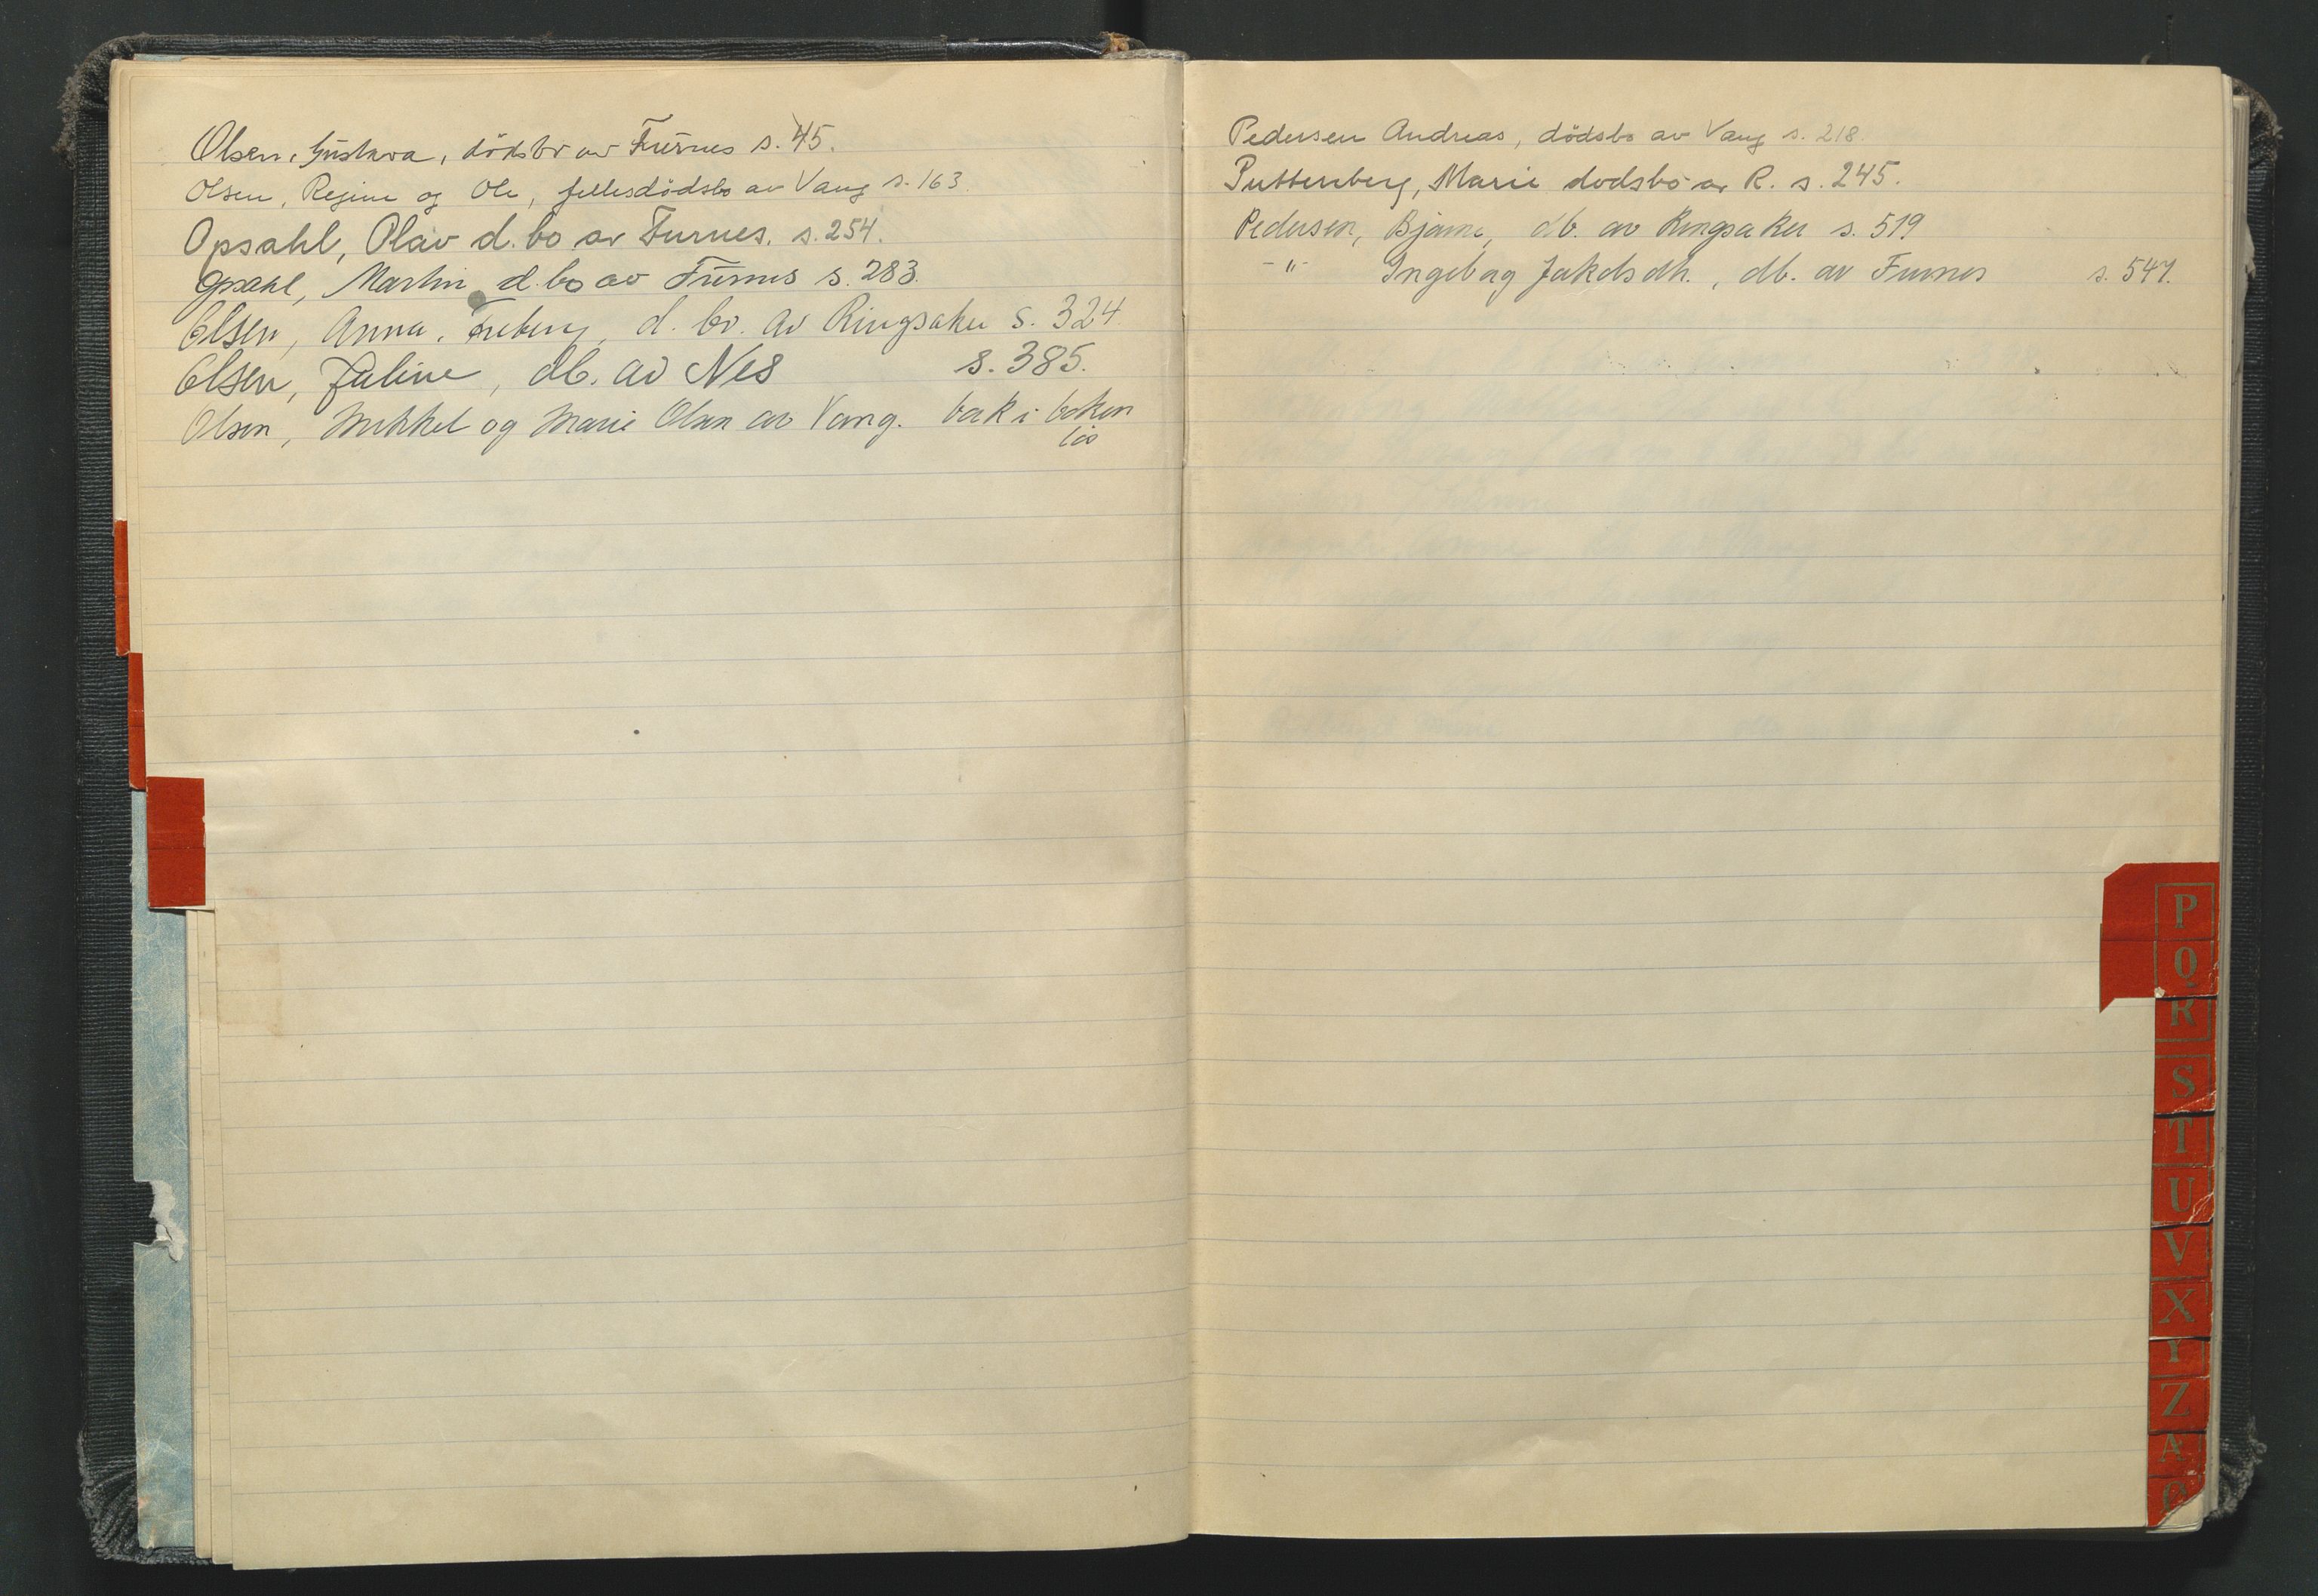 Olsen, Gustava, dödsbo av Furnes s. 45.
Olsen, Regine og Ole, fellesdödsbo av Vang s. 163.
Opsahl, Olav d.bo av Furnes. s. 254.
Opsahl, Martin d.bo av Furnes s. 283.
Olsen, Anna, d. bo. av Ringsaker s. 324
Olsen, Juline, db. av Nes s. 385.
Olsen, Mikkel og Marie Olsen av Vang. bak i boken
lös
Pedersen Andreas, dödsbo av Vang s. 218.
Puttenberg, Marie dodsbo av R. s. 245.
Pedersen, Bjarne, db. av Ringsaker s. 519
-"- Ingeborg Jakobsdtr., db. av Furnes s. 547.
P
Q
R
S
T
U
V
X
Y
Z